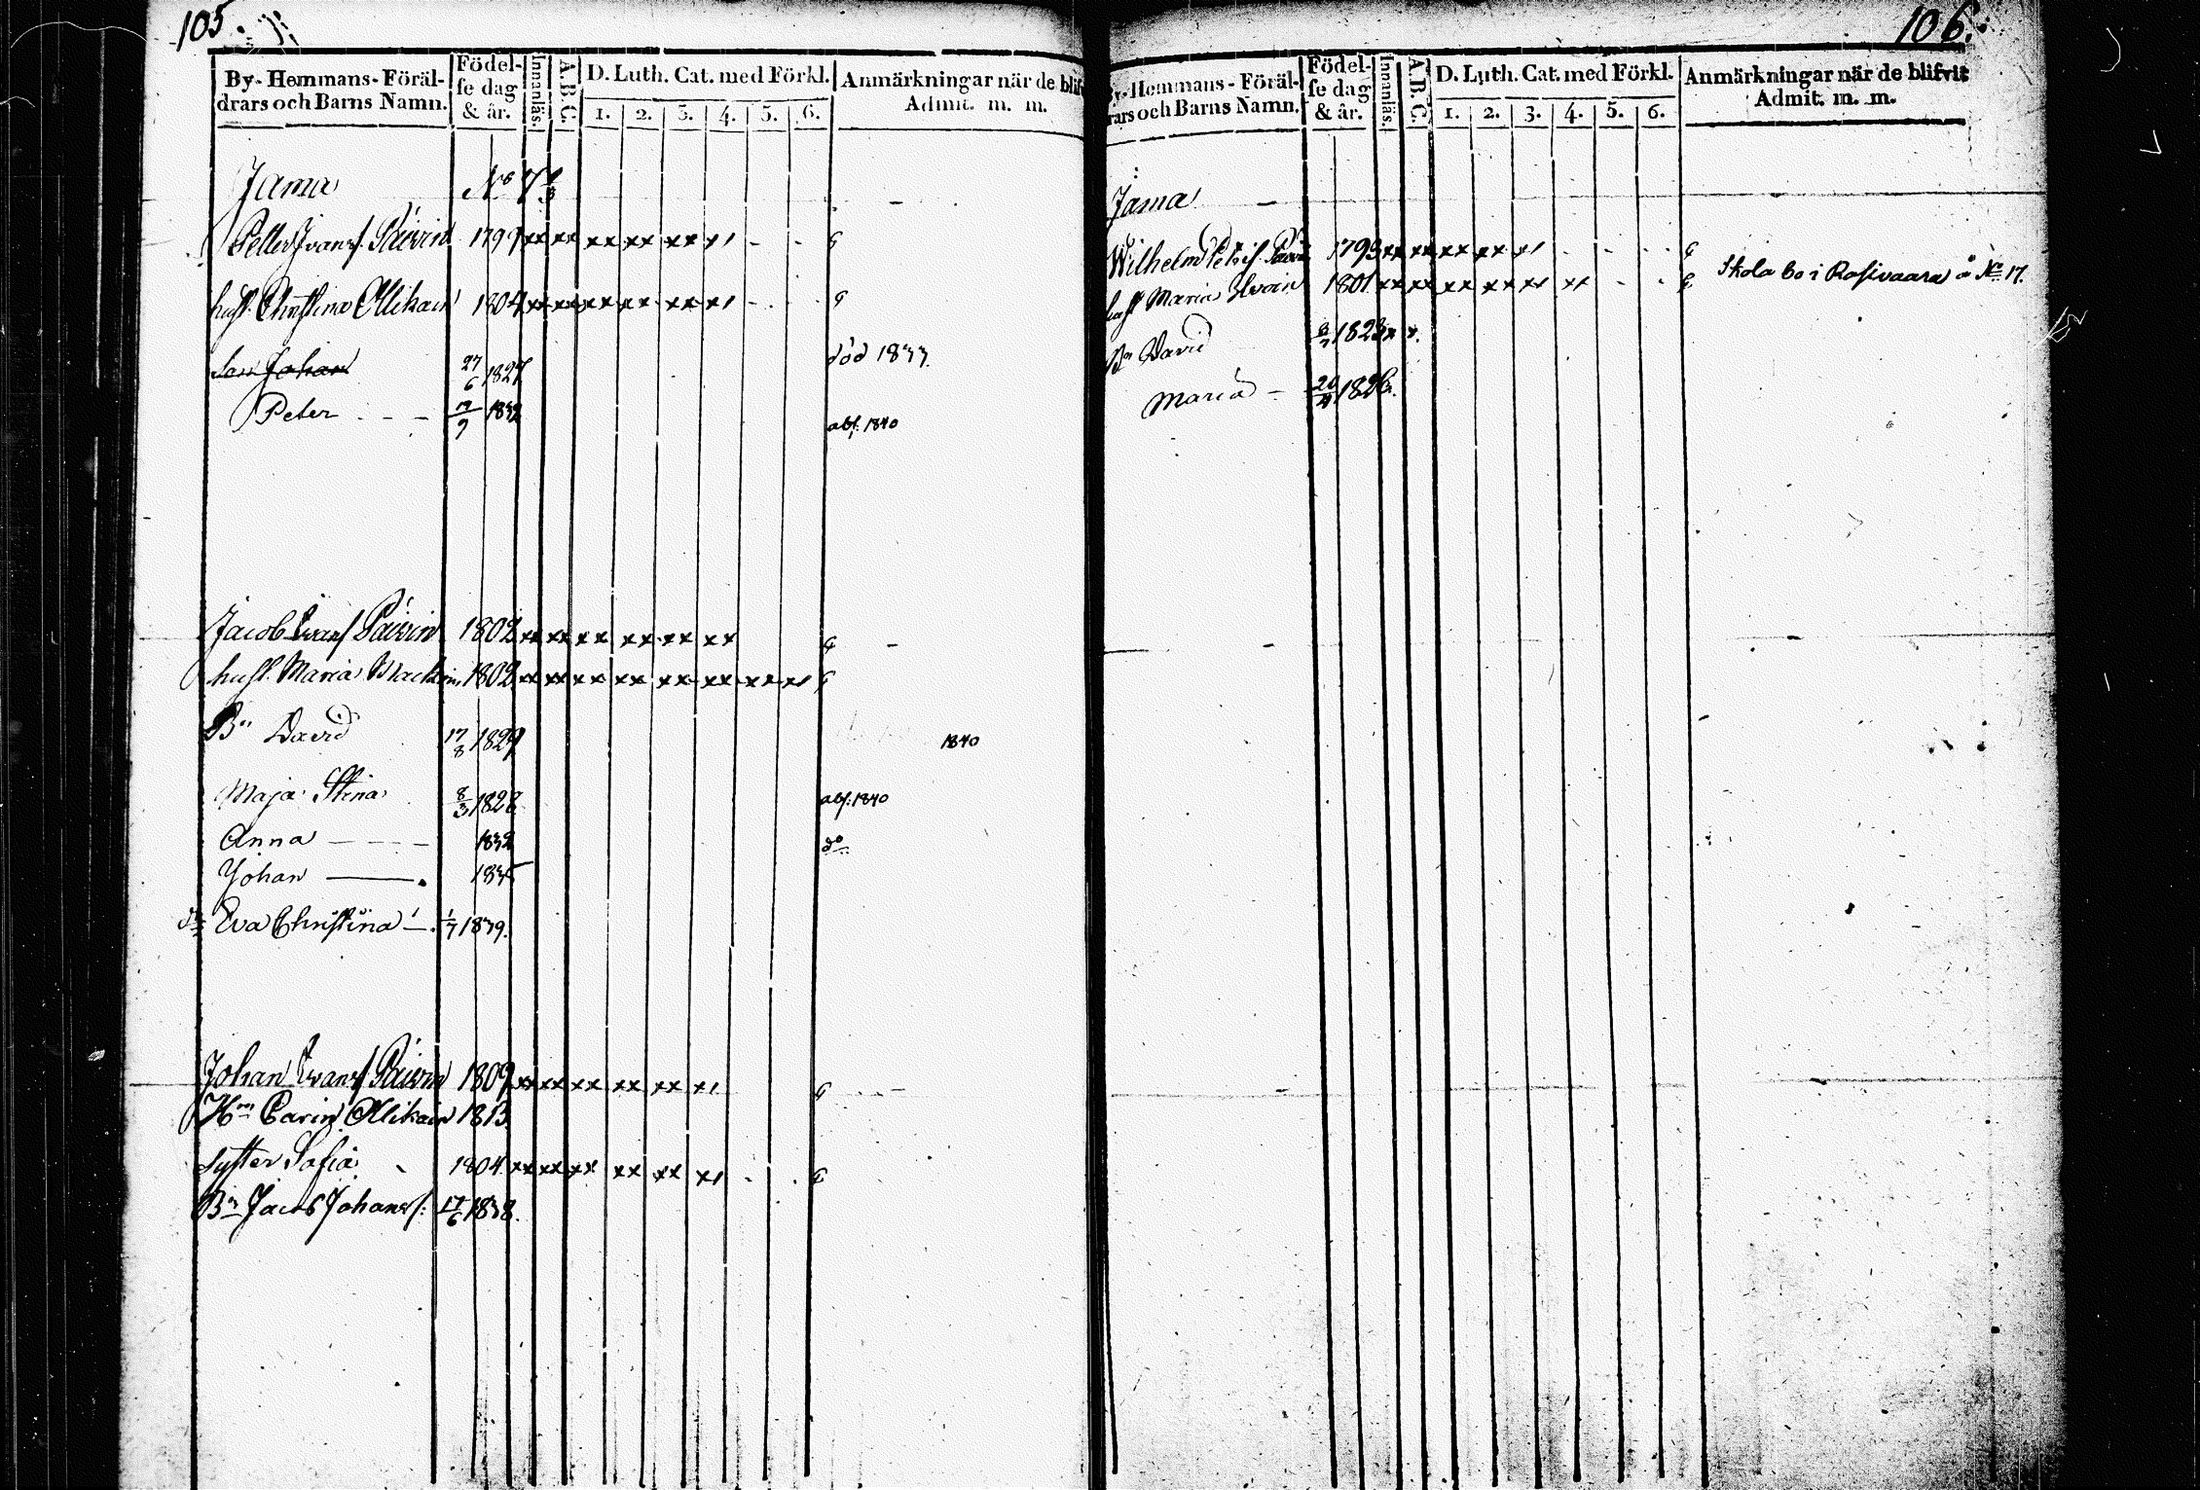 105.
By- Hemmans- Föräl-
drars och Barns Namn.
Födel-
se dag
& år.
Innanläs.
A.B.C.
D. Luth. Cat. med Förkl.
1. 2. 3. 4. 5. 6.
Anmärkningar när de blif
Admit. m. m.
Jama No 7
Petter Ivans Päivin 1799 xx xx xx xx xx x, - -
hust. Christina Ollikain 1804 xx xx xx xx xx x, - -
Son Johan 27/6 1827 död 1833.
Peter - - - 1832 abs: 1840
Jacob Ivans Päivin 1802 xx xx xx xx xx xx
hust. Maria 1802 xx xx xx xx xx xx xx
Bn David 17/8 1829 1840
Maja Stina 8/3 1828 abs: 1840
Anna - - - 1832 do
Johan — 1835
dr Eva Christina — 1/7 1839.
Johan Ivans Päivin 1809 xx xx xx xx xx x,
Hu Carin Ollikain 1813.
Syster Sofia 1804 xx xx xx xx xx x, - -
Bn Jacob Johans: 17/6 1838.
106.
By- Hemmans- Föräl-
rars och Barns Namn.
Födel-
se dag
& år.
Innanläs.
A.B.C.
D. Luth. Cat. med Förkl.
1. 2. 3. 4. 5. 6.
Anmärkningar när de blifvit
Admit. m. m.
Jama —
Wilhelm 1793 xx xx xx xx x, - - -
hust Maria 1801 xx xx xx xx xx xx - - Skola bo i Rasivaara å No 17.
Bn David 1823 x x.
Maria - 1826.